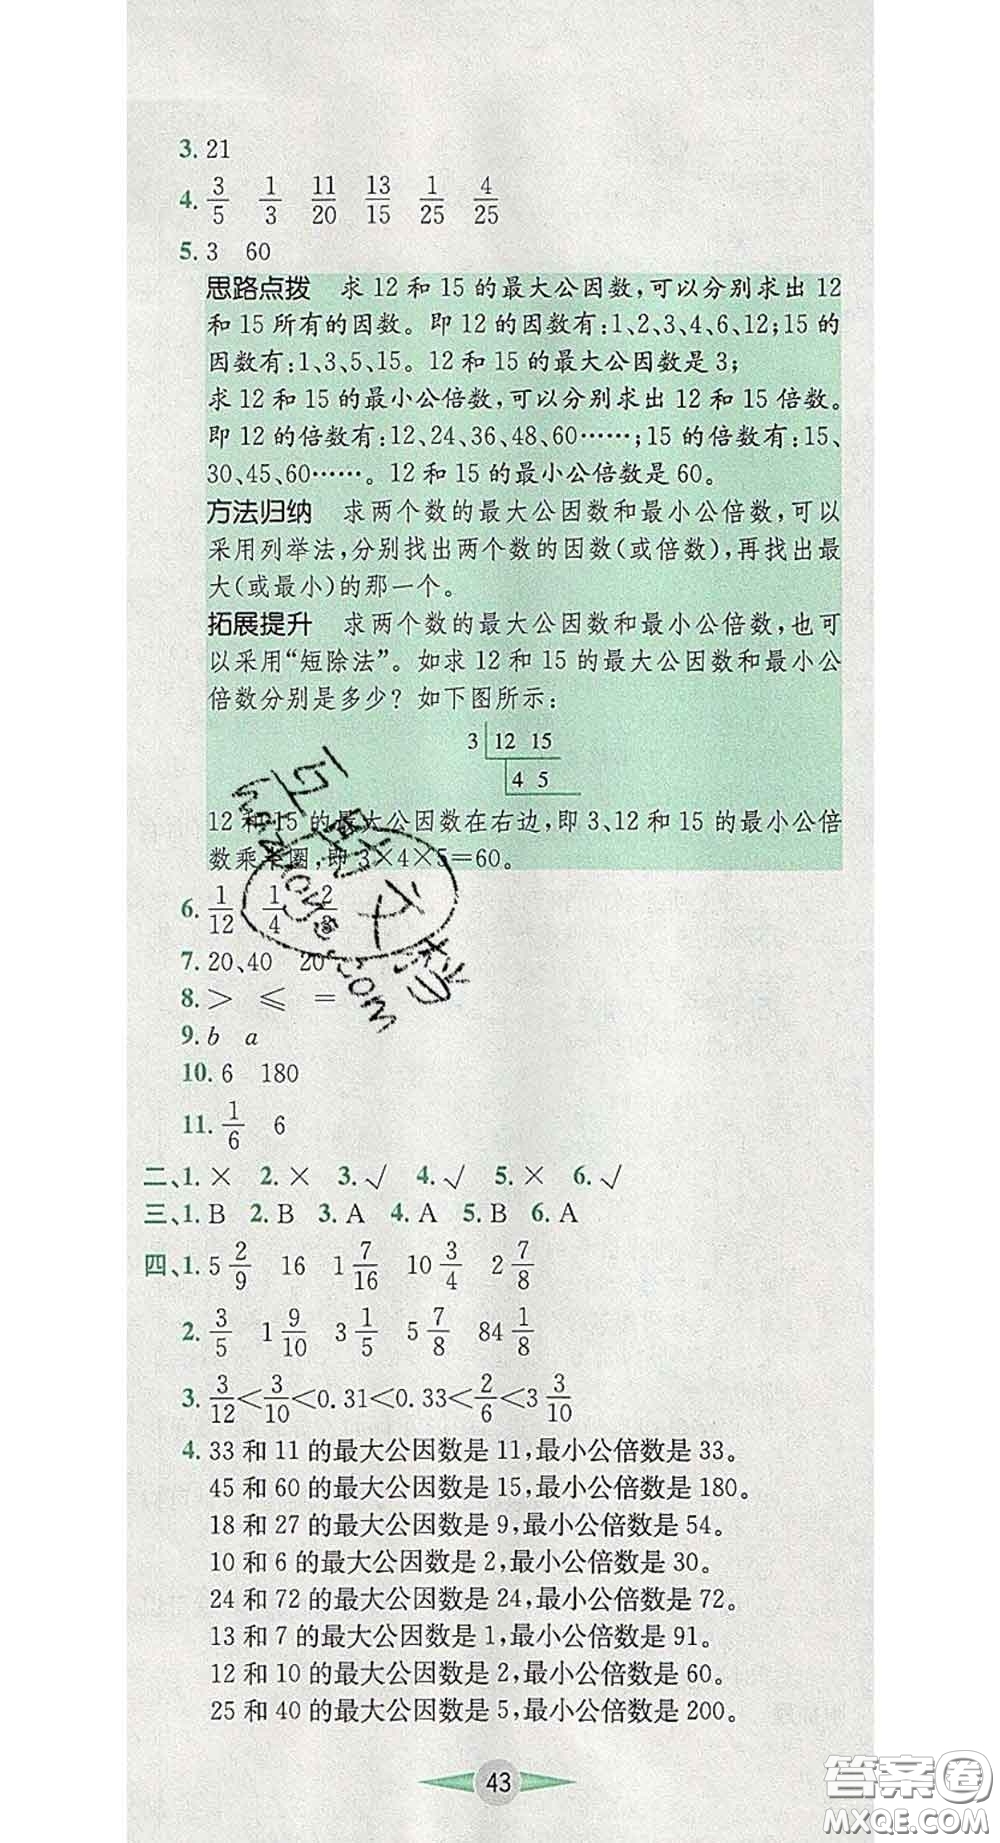 3. 21
4. 3/5 1/3 11/20 13/15 1/25 4/25
5. 3 60
思路点拨 求 12 和 15 的最大公因数,可以分别求出 12
和 15 所有的因数。即 12 的因数有:1、2、3、4、6、12;15 的
因数有:1、3、5、15。12 和 15 的最大公因数是 3;
求 12 和 15 的最小公倍数,可以分别求出 12 和 15 倍数。
即 12 的倍数有:12、24、36、48、60……;15 的倍数有:15、
30、45、60……。12 和 15 的最小公倍数是 60。
方法归纳 求两个数的最大公因数和最小公倍数,可以
采用列举法,分别找出两个数的因数(或倍数),再找出最
大(或最小)的那一个。
拓展提升 求两个数的最大公因数和最小公倍数,也可
以采用“短除法”。如求 12 和 15 的最大公因数和最小公
倍数分别是多少?如下图所示:
3 12 15
4 5
12 和 15 的最大公因数在右边,即 3、12 和 15 的最小公倍
数乘半圈,即 3×4×5=60。
6. 1/12 1/4
7. 20、40 20
8. > ≤ =
9. b a
10. 6 180
11. 1/6 6
二、1. × 2. × 3. √ 4. √ 5. × 6. √
三、1. B 2. B 3. A 4. A 5. B 6. A
四、1. 5 2/9 16 1 7/16 10 3/4 2 7/8
2. 3/5 1 9/10 3 1/5 5 7/8 84 1/8
3. 3/12<3/10<0.31<0.33<2/6<3 3/10
4. 33 和 11 的最大公因数是 11,最小公倍数是 33。
45 和 60 的最大公因数是 15,最小公倍数是 180。
18 和 27 的最大公因数是 9,最小公倍数是 54。
10 和 6 的最大公因数是 2,最小公倍数是 30。
24 和 72 的最大公因数是 24,最小公倍数是 72。
13 和 7 的最大公因数是 1,最小公倍数是 91。
12 和 10 的最大公因数是 2,最小公倍数是 60。
25 和 40 的最大公因数是 5,最小公倍数是 200。
43
答案圈
MXQE.COM